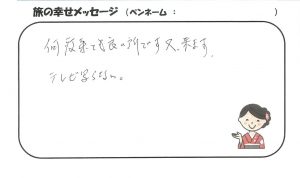 旅の幸せメッセージ（ペンネーム：　　　　）
何度来ても良い所です又、来ます。
テレビ写らない。